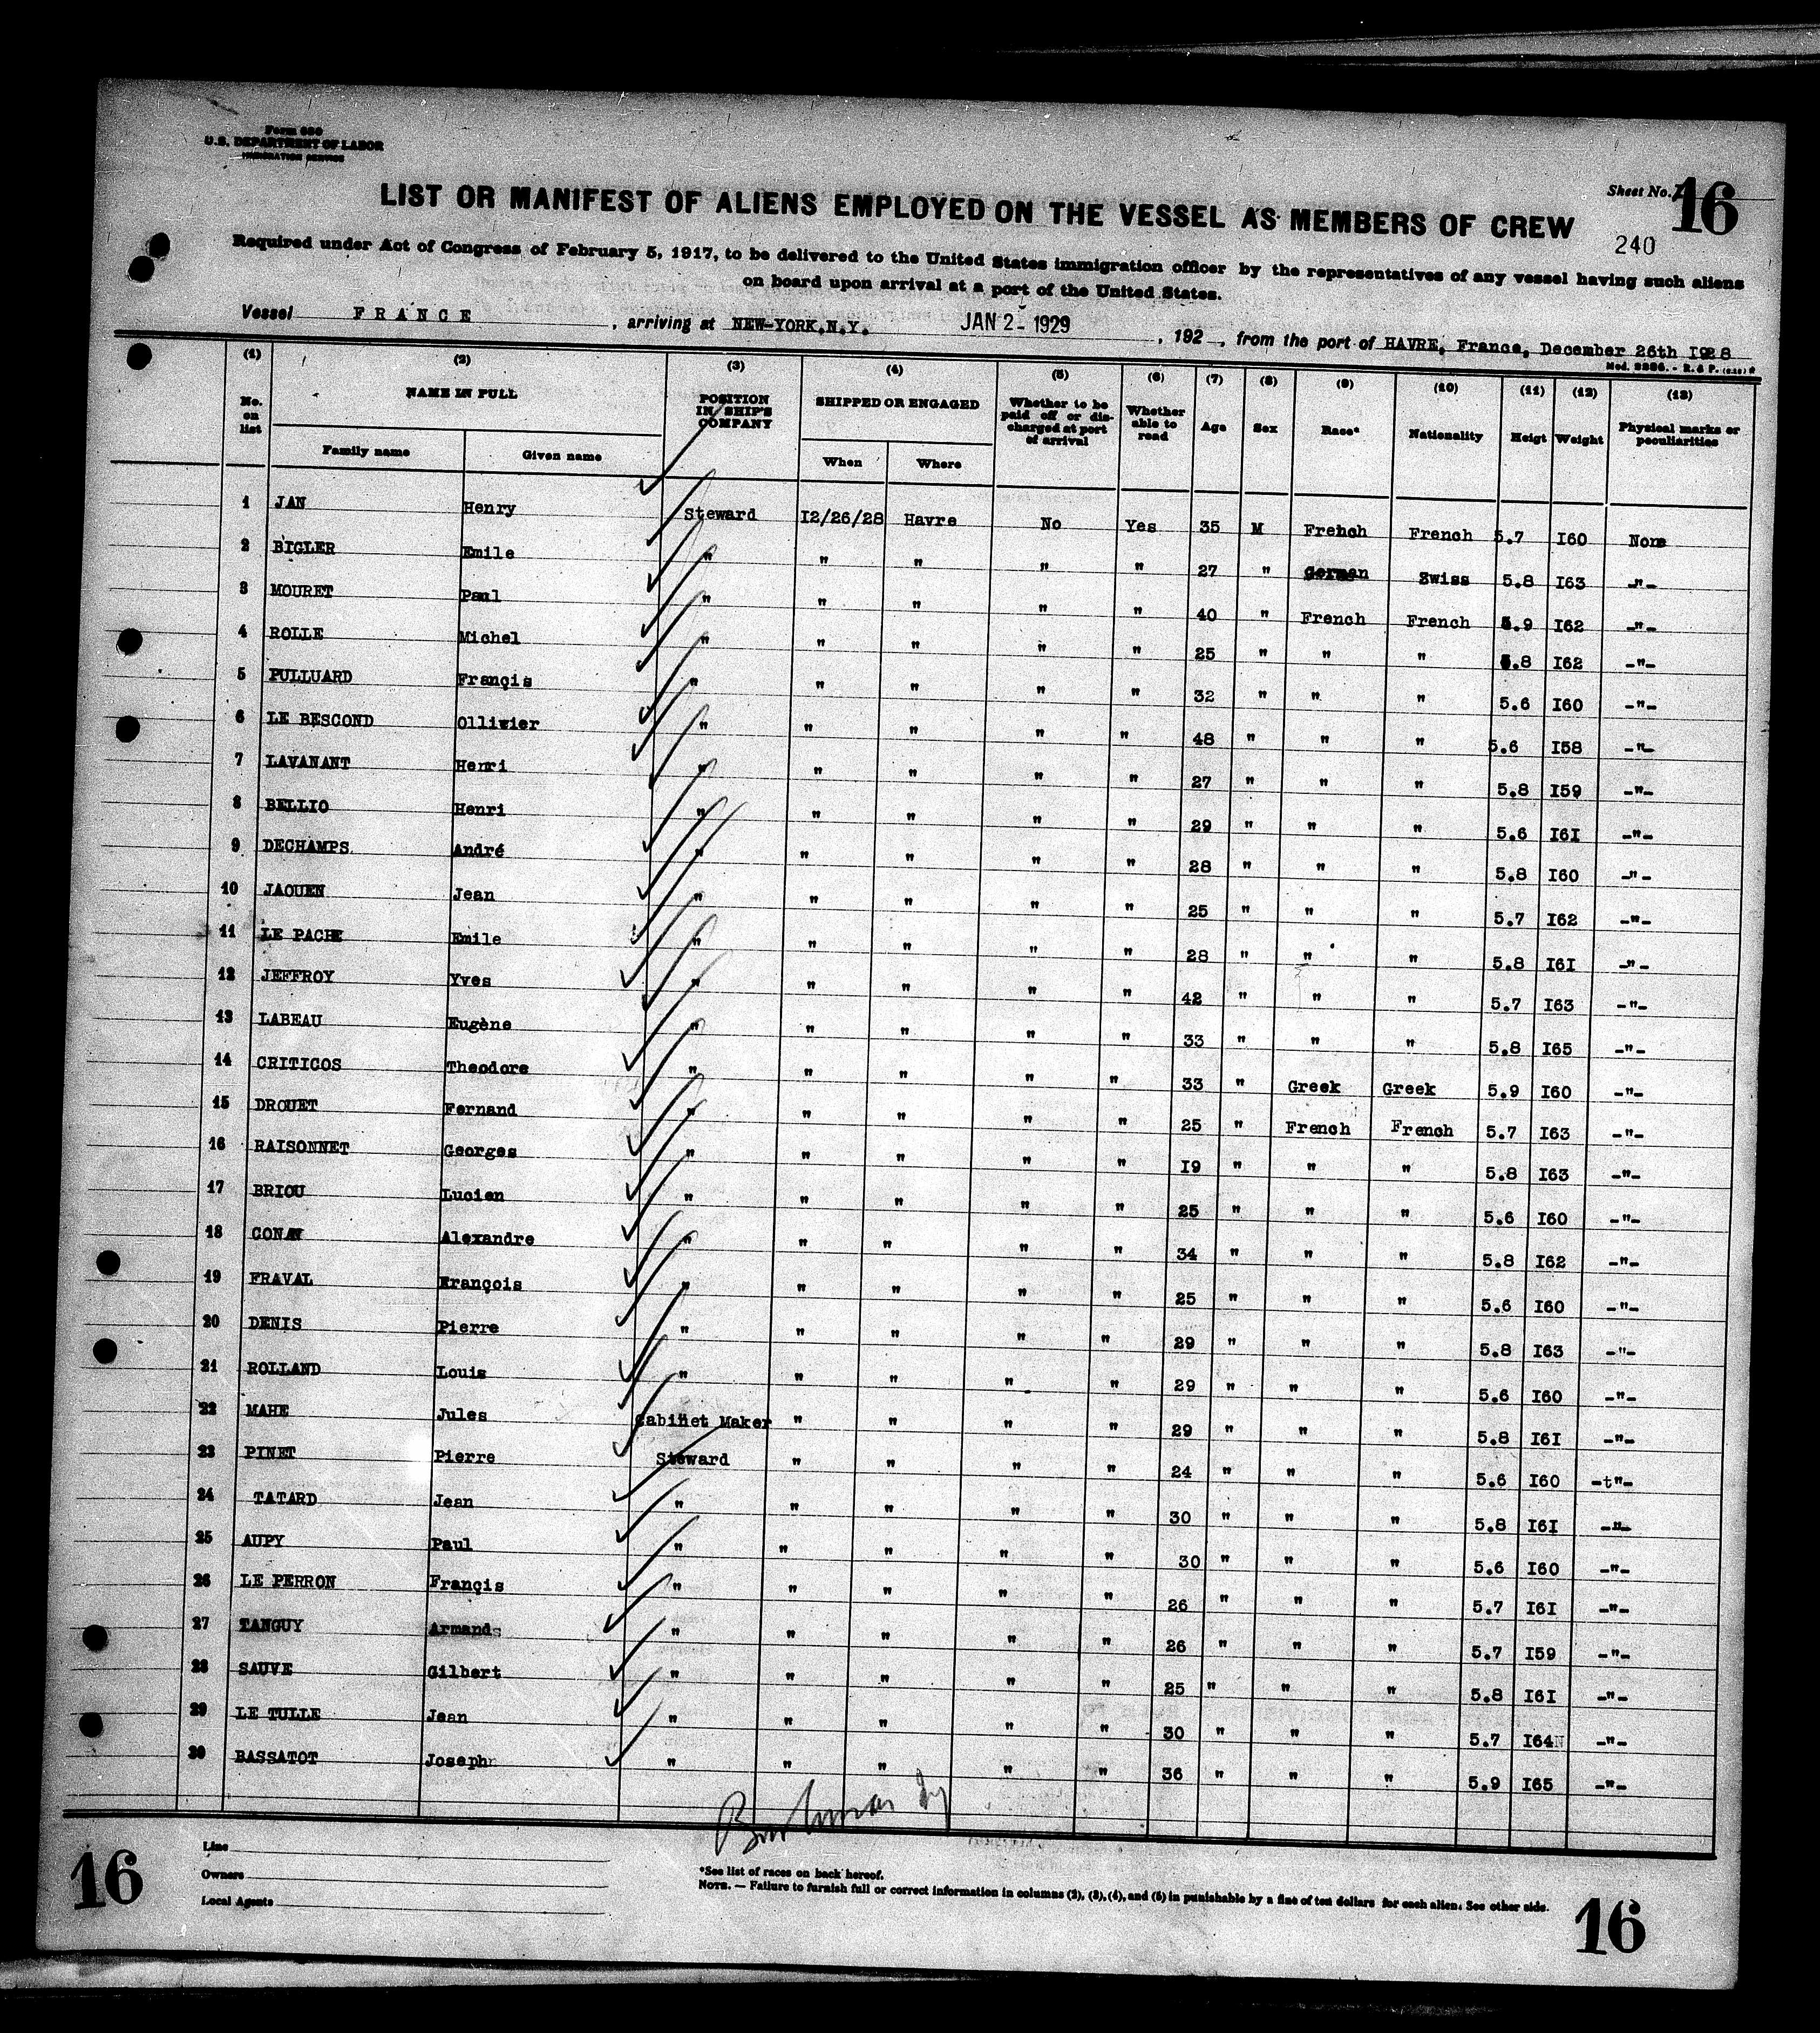 Form 680
U.S. DEPARTMENT OF LABOR
IMMIGRATION SERVICE
Sheet No. 16
LIST OR MANIFEST OF ALIENS EMPLOYED ON THE VESSEL AS MEMBERS OF CREW
240
Required under Act of Congress of February 5, 1917, to be delivered to the United States immigration officer by the representatives of any vessel having such aliens
on board upon arrival at a port of the United States.
Vessel FRANCE, arriving at NEW-YORK.N.Y. JAN 2- 1929, 192 , from the port of HAVRE, France, December 26th I928
(1) (2) (3) (4) (5) (6) (7) (8) (9) (10) (11) (12) (13)
No. on list NAME IN FULL POSITION IN SHIP'S COMPANY SHIPPED OR ENGAGED Whether to be paid off or discharged at port of arrival Whether able to read Age Sex Race* Nationality Heigt Weight Physical marks or peculiarities
Family name Given name When Where
1 JAN Henry Steward I2/26/28 Havre No Yes 35 M French French 5.7 I60 None
2 BIGLER Emile " " " " " 27 " German Swiss 5.8 I63 -"-
3 MOURET Paul " " " " " 40 " French French 5.9 I62 -"-
4 ROLLE Michel " " " " " 25 " " " 5.8 I62 -"-
5 PULLUARD Françis " " " " " 32 " " " 5.6 I60 -"-
6 LE BESCOND Olliwier " " " " " 48 " " " 5.6 I58 -"-
7 LAVANANT Henri " " " " " 27 " " " 5.8 I59 -"-
8 BELLIO Henri " " " " " 29 " " " 5.6 I6I -"-
9 DECHAMPS. André " " " " " 28 " " " 5.8 I60 -"-
10 JAOUEN Jean " " " " " 25 " " " 5.7 I62 -"-
11 LE PACHE Emile " " " " " 28 " " " 5.8 I6I -"-
12 JEFFROY Yves " " " " " 42 " " " 5.7 I63 -"-
13 LABEAU Eugène " " " " " 33 " " " 5.8 I65 -"-
14 CRITICOS Theodore " " " " " 33 " Greek Greek 5.9 I60 -"-
15 DROUET Fernand " " " " " 25 " French French 5.7 I63 -"-
16 RAISONNET Georges " " " " " I9 " " " 5.8 I63 -"-
17 BRIOU Lucien " " " " " 25 " " " 5.6 I60 -"-
18 CONAN Alexandre " " " " " 34 " " " 5.8 I62 -"-
19 FRAVAL François " " " " " 25 " " " 5.6 I60 -"-
20 DENIS Pierre " " " " " 29 " " " 5.8 I63 -"-
21 ROLLAND Louis " " " " " 29 " " " 5.6 I60 -"-
22 MAHE Jules Cabinet Maker " " " " 29 " " " 5.8 I6I -"-
23 PINET Pierre Steward " " " " 24 " " " 5.6 I60 -t"-
24 TATARD Jean " " " " " 30 " " " 5.8 I6I -"-
25 AUPY Paul " " " " " 30 " " " 5.6 I60 -"-
26 LE PERRON Françis " " " " " 26 " " " 5.7 I6I -"-
27 TANGUY Armands " " " " " 26 " " " 5.7 I59 -"-
28 SAUVE Gilbert " " " " " 25 " " " 5.8 I6I -"-
29 LE TULLE Jean " " " " " 30 " " " 5.7 I64 -"-
30 BASSATOT Joseph " " " " " 36 " " " 5.9 I65 -"-
Line
Owners
Local Agents
*See list of races on back hereof.
NOTE. — Failure to furnish full or correct information in columns (2), (3), (4), and (5) in punishable by a fine of ten dollars for each alien. See other side.
16
16